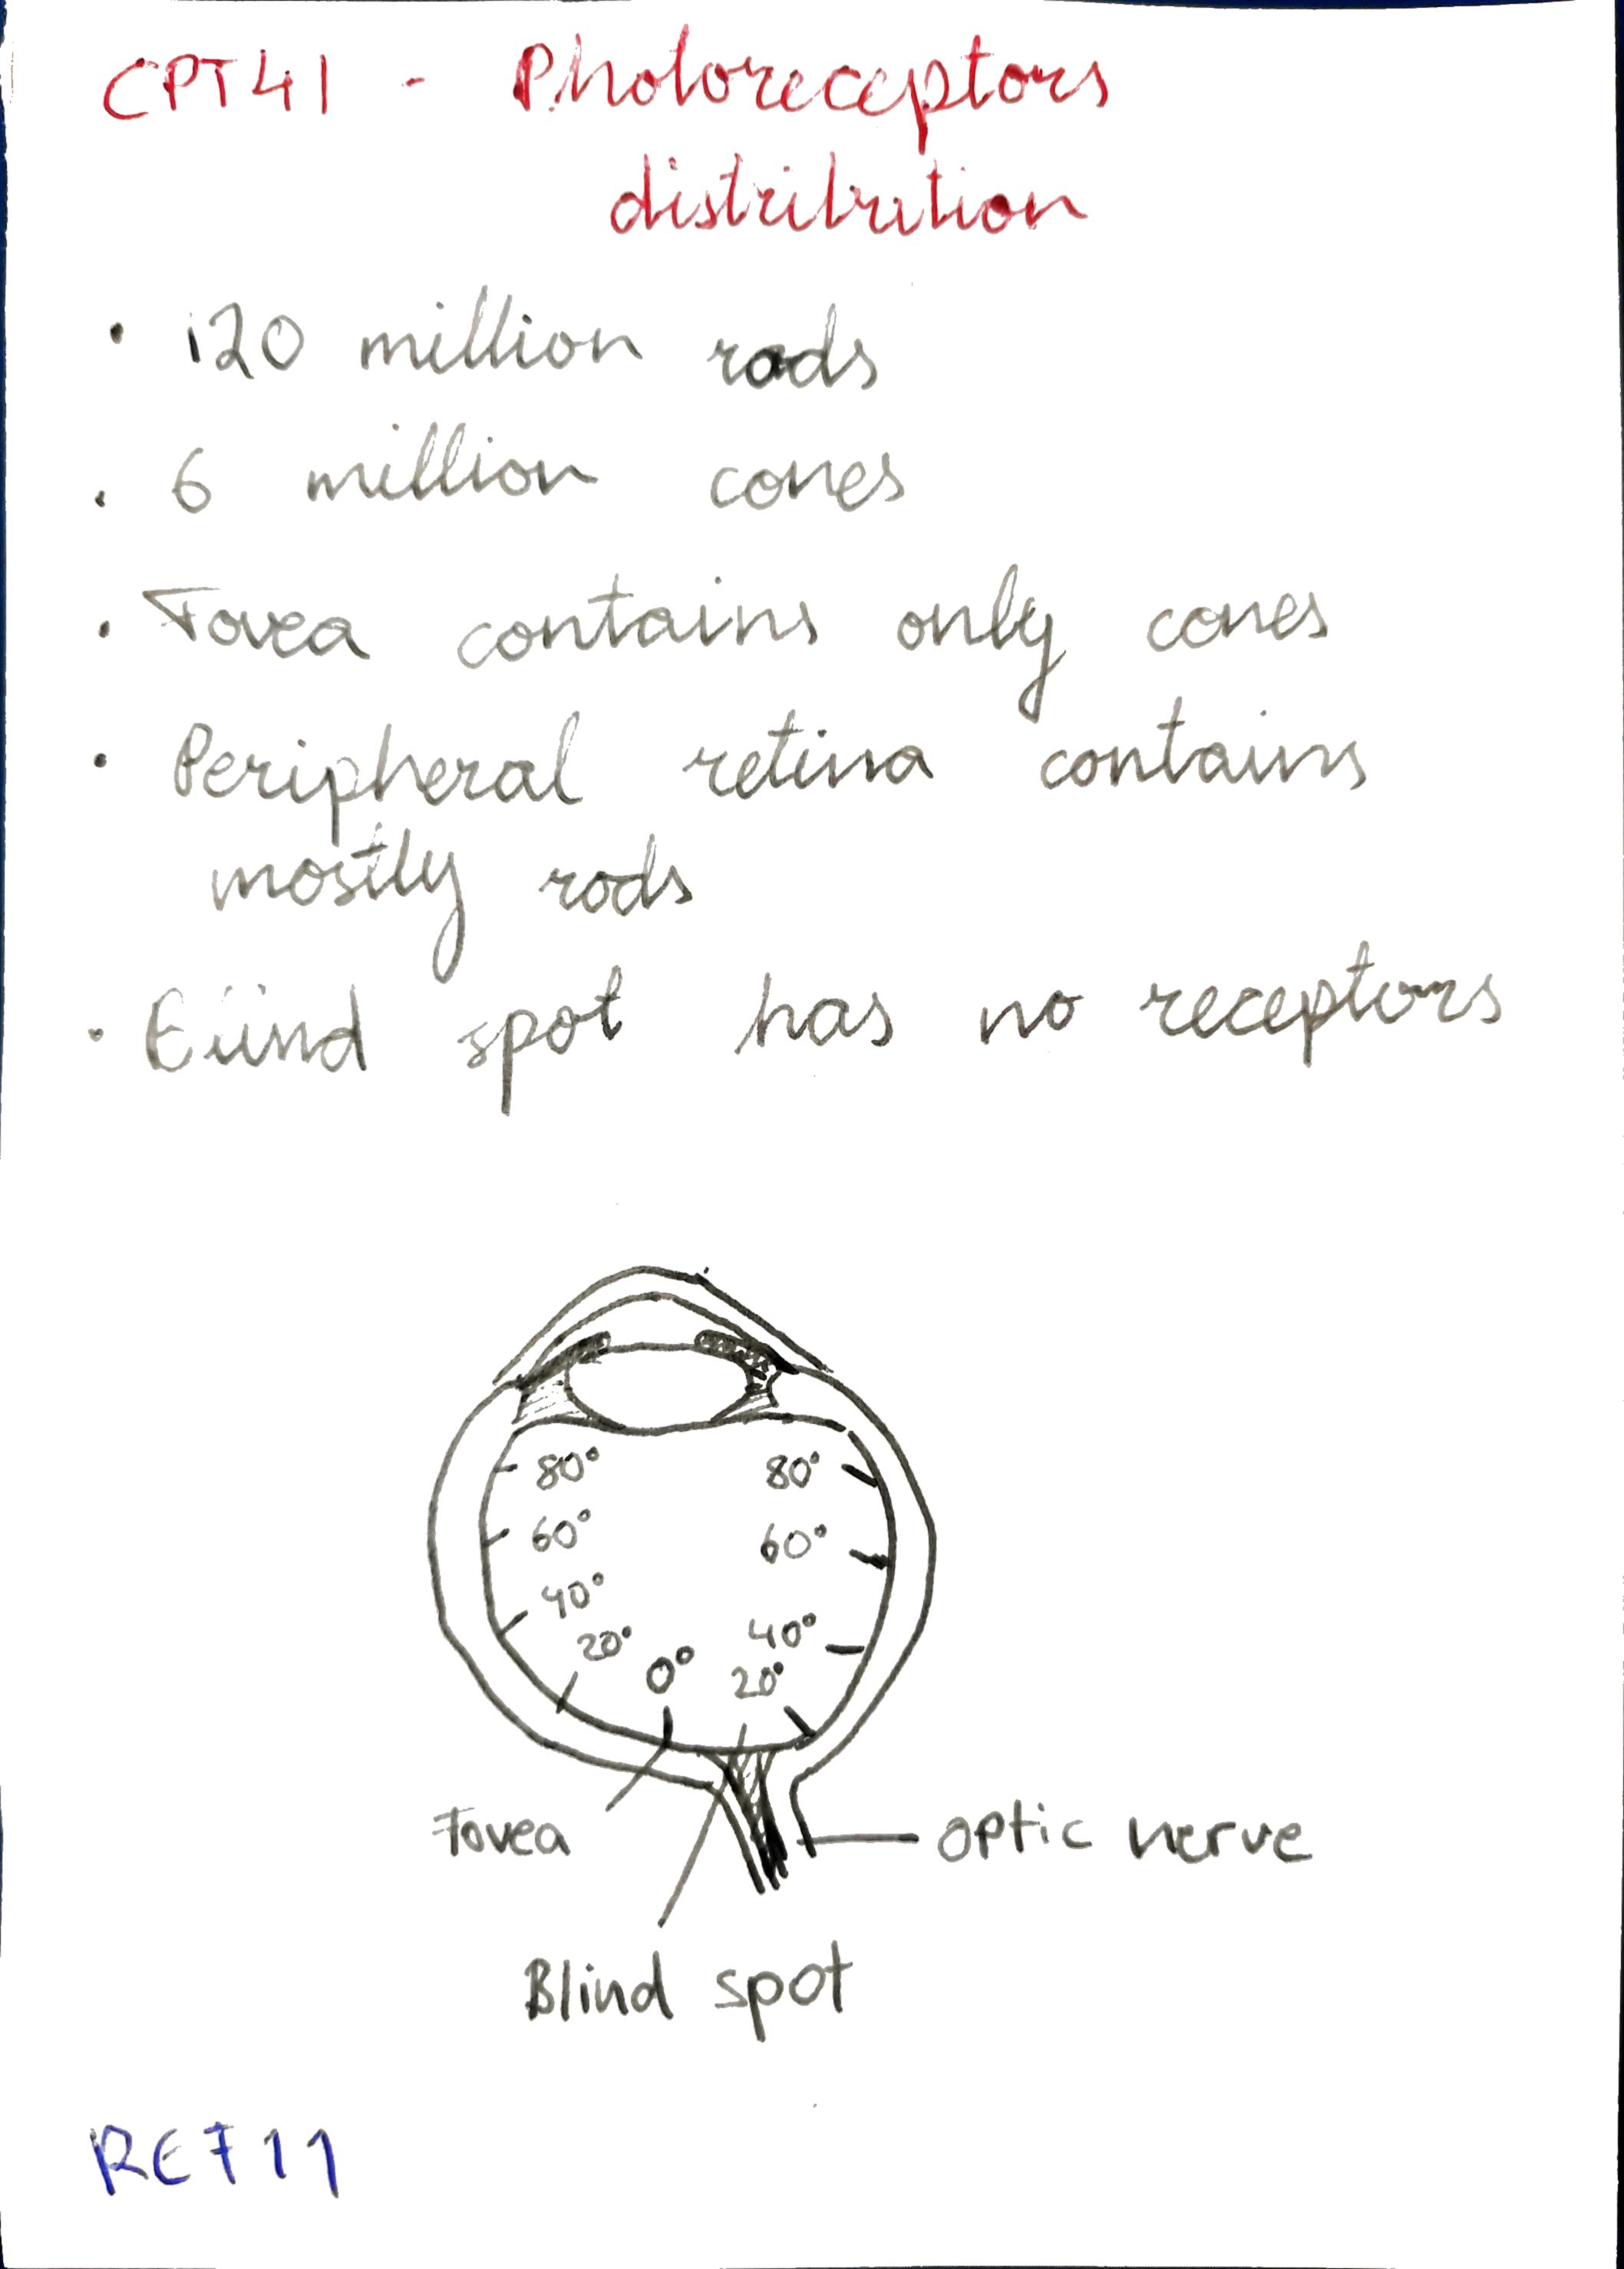 CPT41 - Photoreceptors
distribution
• 120 million rods
• 6 million cones
• Fovea contains only cones
• Peripheral retina contains
mostly rods
• Blind spot has no receptors
80° 80°
60° 60°
40° 40°
20° 0° 20°
Fovea optic nerve
Blind spot
REF11